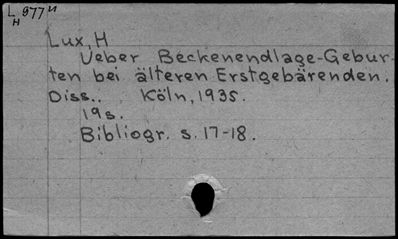 L 977 u
H
Lux, H
Ueber Beckenendlage-Gebur-
ten bei älteren Erstgebärenden.
Diss.. Köln, 1935.
19s.
Bibliogr. s. 17-18.